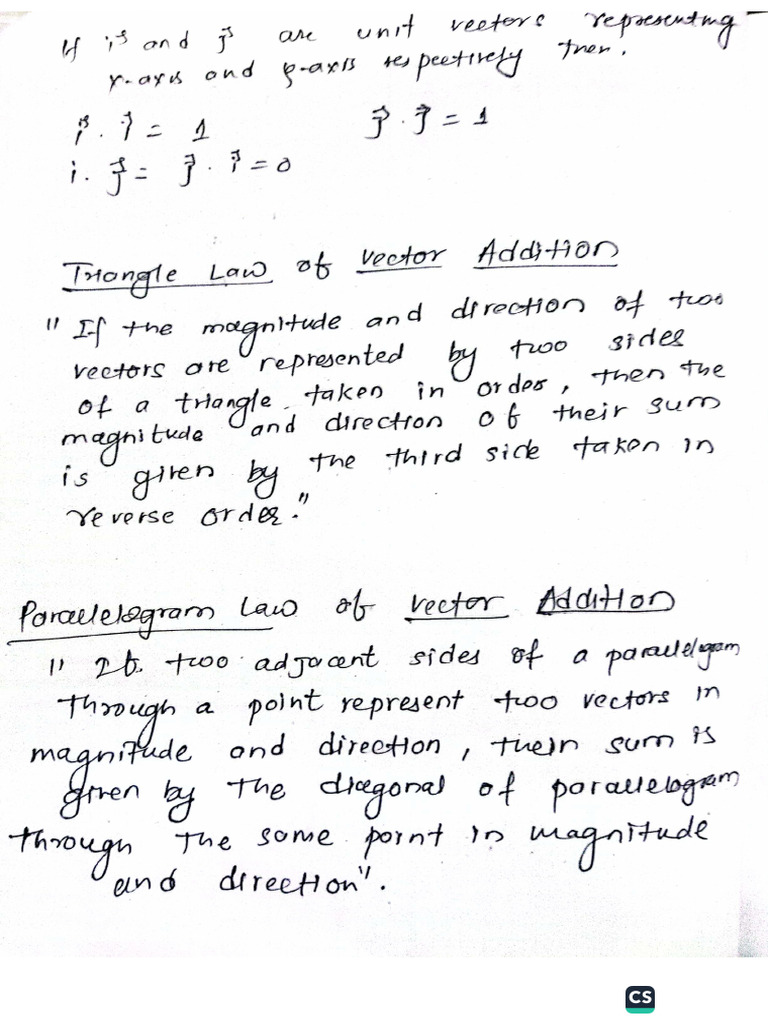 If i⃗ and j⃗ are unit vectors representing
x-axis and y-axis respectively then.
i⃗ . i⃗ = 1 j⃗ . j⃗ = 1
i . j⃗ = j⃗ . i⃗ = 0
Triangle Law of Vector Addition
" If the magnitude and direction of two
vectors are represented by two sides
of a triangle taken in order, then the
magnitude and direction of their sum
is given by the third side taken in
reverse order."
Parallelogram Law of Vector Addition
" If two adjacent sides of a parallelogam
through a point represent two vectors in
magnitude and direction, their sum is
given by the diagonal of parallelogram
through the same point in magnitude
and direction".
CS